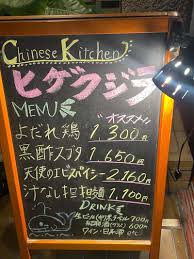 Chinese Kitchen
ヒゲクジラ
MENU オススメ
よだれ鶏 1,300円
黒酢スブタ 1,650円
天使のエビパイシー 2,160円
汁なし担担麺 1,100円
DRINK
700円
600円
ワイン・日本酒